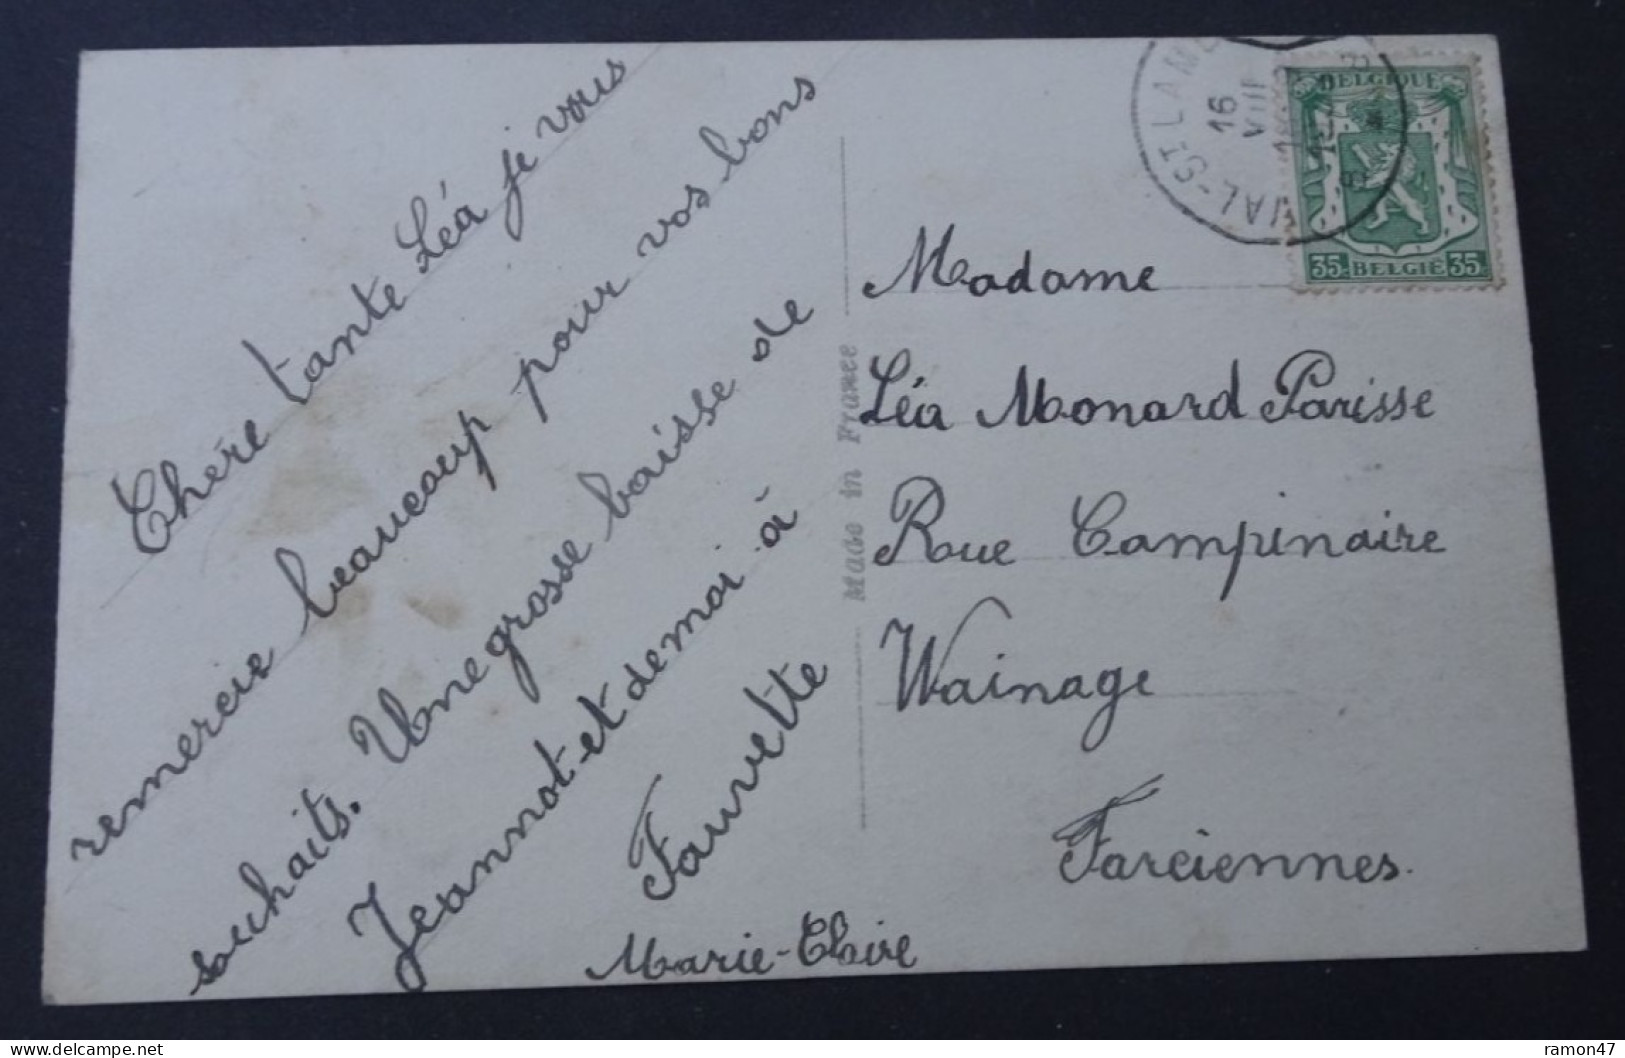 Chère tante Léa je vous
remercie beaucoup pour vos bons
souhaits. Une grosse baisse de
Jeannot et de moi à
Fauvette
Marie-Claire
Made in France
Madame
Léa Monard Parisse
Rue Campinaire
Wainage
Farciennes.
BELGIQUE
35 BELGIË 35
VAL-ST-LAMB
16
VIII
ramon47